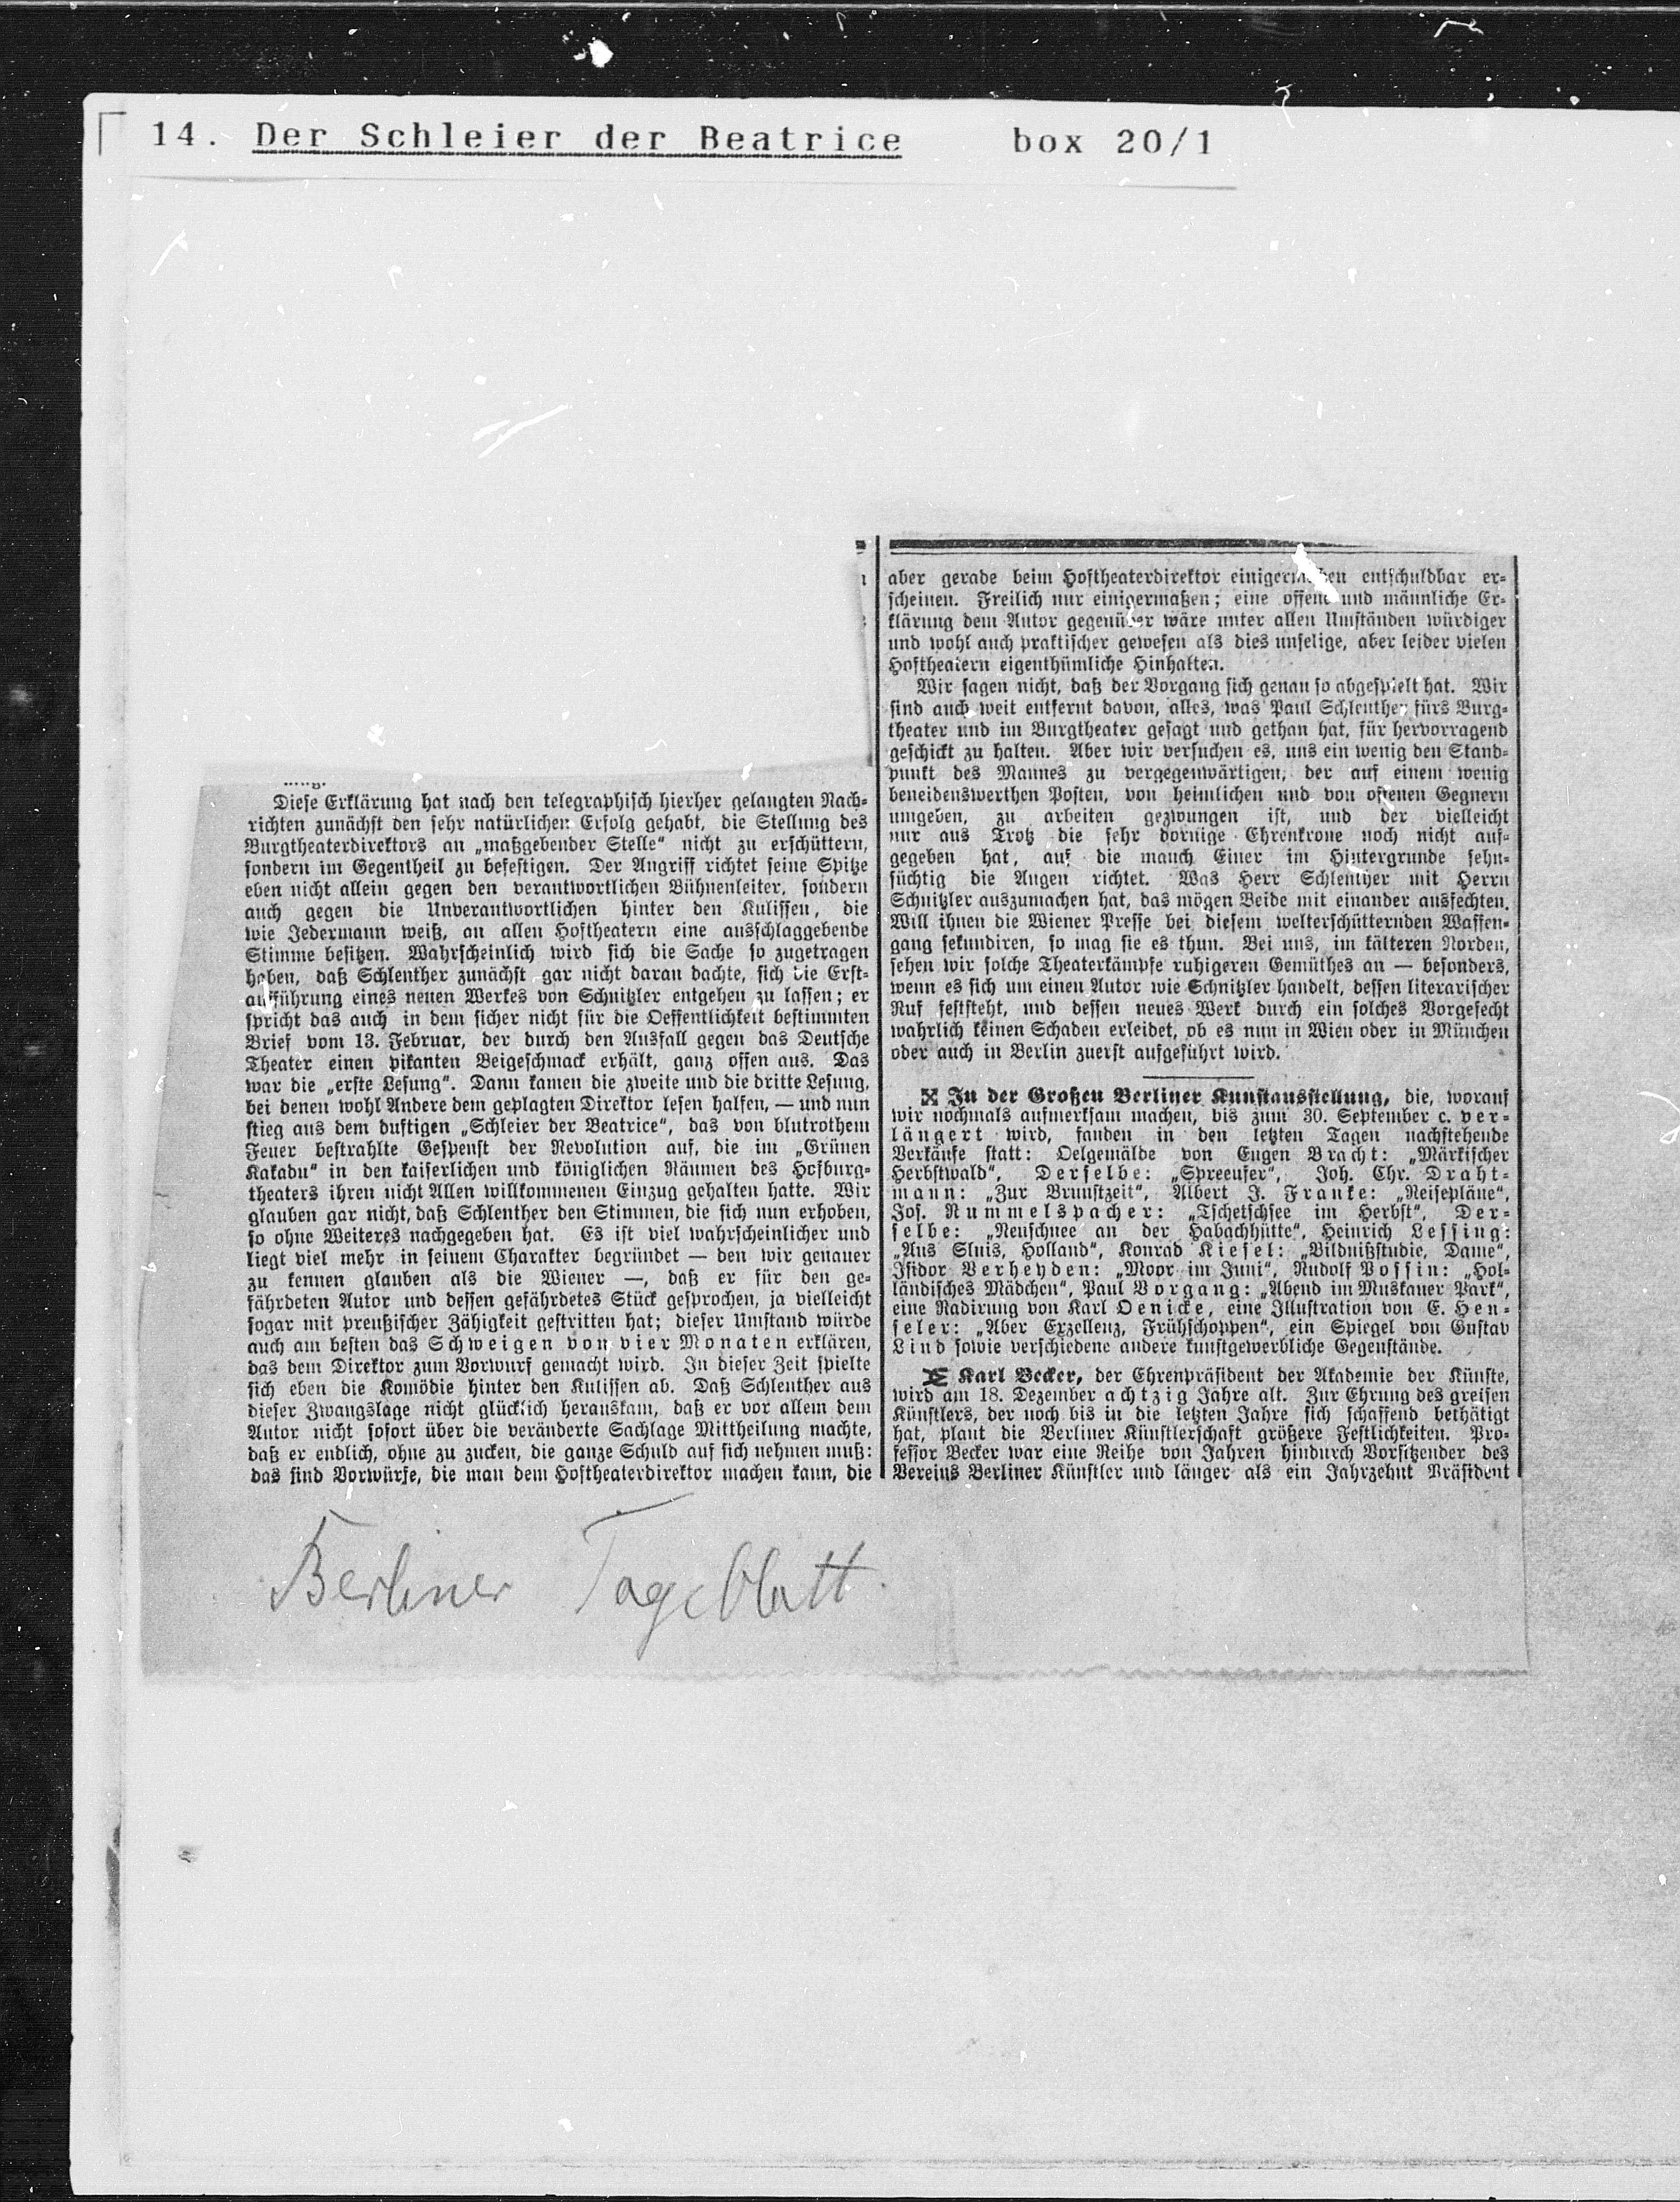 14. Der Schleier der Beatrice box 20/1
Diese Erklärung hat nach den telegraphisch hierher gelangten Nach-
richten zunächst den sehr natürlichen Erfolg gehabt, die Stellung des
Burgtheaterdirektors an „maßgebender Stelle“ nicht zu erschüttern,
sondern im Gegentheil zu befestigen. Der Angriff richtet seine Spitze
eben nicht allein gegen den verantwortlichen Bühnenleiter, sondern
auch gegen die Unverantwortlichen hinter den Kulissen, die
wie Jedermann weiß, an allen Hoftheatern eine ausschlaggebende
Stimme besitzen. Wahrscheinlich wird sich die Sache so zugetragen
haben, daß Schlenther zunächst gar nicht daran dachte, sich die Erst-
aufführung eines neuen Werkes von Schnitzler entgehen zu lassen; er
spricht das auch in dem sicher nicht für die Oeffentlichkeit bestimmten
Brief vom 13. Februar, der durch den Ausfall gegen das Deutsche
Theater einen pikanten Beigeschmack erhält, ganz offen aus. Das
war die „erste Lesung“. Dann kamen die zweite und die dritte Lesung,
bei denen wohl Andere dem geplagten Direktor lesen halfen, — und nun
stieg aus dem duftigen „Schleier der Beatrice“, das von blutrothem
Feuer bestrahlte Gespenst der Revolution auf, die im „Grünen
Kakadu“ in den kaiserlichen und königlichen Räumen des Hofburg-
theaters ihren nicht Allen willkommenen Einzug gehalten hatte. Wir
glauben gar nicht, daß Schlenther den Stimmen, die sich nun erhoben,
so ohne Weiteres nachgegeben hat. Es ist viel wahrscheinlicher und
liegt viel mehr in seinem Charakter begründet — den wir genauer
zu kennen glauben als die Wiener —, daß er für den ge-
fährdeten Autor und dessen gefährdetes Stück gesprochen, ja vielleicht
sogar mit preußischer Zähigkeit gestritten hat; dieser Umstand würde
auch am besten das Schweigen von vier Monaten erklären,
das dem Direktor zum Vorwurf gemacht wird. In dieser Zeit spielte
sich eben die Komödie hinter den Kulissen ab. Daß Schlenther aus
dieser Zwangslage nicht glücklich herauskam, daß er vor allem dem
Autor nicht sofort über die veränderte Sachlage Mittheilung machte,
daß er endlich, ohne zu zucken, die ganze Schuld auf sich nehmen muß:
das sind Vorwürfe, die man dem Hoftheaterdirektor machen kann, die
aber gerade beim Hoftheaterdirektor einigermaßen entschuldbar er-
scheinen. Freilich nur einigermaßen; eine offene und männliche Er-
klärung dem Autor gegenüber wäre unter allen Umständen würdiger
und wohl auch praktischer gewesen als dies unselige, aber leider vielen
Hoftheatern eigenthümliche Hinhalten.
Wir sagen nicht, daß der Vorgang sich genau so abgespielt hat. Wir
sind auch weit entfernt davon, alles, was Paul Schlenther fürs Burg-
theater und im Burgtheater gesagt und gethan hat, für hervorragend
geschickt zu halten. Aber wir versuchen es, uns ein wenig den Stand-
punkt des Mannes zu vergegenwärtigen, der auf einem wenig
beneidenswerthen Posten, von heimlichen und von offenen Gegnern
umgeben, zu arbeiten gezwungen ist, und der vielleicht
nur aus Trotz die sehr dornige Ehrenkrone noch nicht auf-
gegeben hat, auf die manch Einer im Hintergrunde sehn-
süchtig die Augen richtet. Was Herr Schlenther mit Herrn
Schnitzler auszumachen hat, das mögen Beide mit einander ausfechten.
Will ihnen die Wiener Presse bei diesem welterschütternden Waffen-
gang sekundiren, so mag sie es thun. Bei uns, im kälteren Norden,
sehen wir solche Theaterkämpfe ruhigeren Gemüthes an — besonders,
wenn es sich um einen Autor wie Schnitzler handelt, dessen literarischer
Ruf feststeht, und dessen neues Werk durch ein solches Vorgefecht
wahrlich keinen Schaden erleidet, ob es nun in Wien oder in München
oder auch in Berlin zuerst aufgeführt wird.
In der Großen Berliner Kunstausstellung, die, worauf
wir nochmals aufmerksam machen, bis zum 30. September c. ver-
längert wird, fanden in den letzten Tagen nachstehende
Verkäufe statt: Oelgemälde von Eugen Bracht: „Märkischer
Herbstwald“, Derselbe: „Spreeufer“, Joh. Chr. Draht-
mann: „Zur Brunstzeit“, Albert J. Franke: „Reisepläne“,
Jos. Rummelspacher: „Tschetschsee im Herbst“, Der-
selbe: „Neuschnee an der Habachhütte“, Heinrich Lessing:
„Aus Sluis, Holland“, Konrad Kiesel: „Bildnißstudie, Dame“,
Isidor Verheyden: „Moor im Juni“, Rudolf Possin: „Hol-
ländisches Mädchen“, Paul Vorgang: „Abend im Muskauer Park“,
eine Radirung von Karl Oenicke, eine Illustration von E. Hen-
seler: „Aber Exzellenz, Frühschoppen“, ein Spiegel von Gustav
Lind sowie verschiedene andere kunstgewerbliche Gegenstände.
Karl Becker, der Ehrenpräsident der Akademie der Künste,
wird am 18. Dezember achtzig Jahre alt. Zur Ehrung des greisen
Künstlers, der noch bis in die letzten Jahre sich schaffend bethätigt
hat, plant die Berliner Künstlerschaft größere Festlichkeiten. Pro-
fessor Becker war eine Reihe von Jahren hindurch Vorsitzender des
Vereins Berliner Künstler und länger als ein Jahrzehnt Präsident
Berliner Tageblatt.